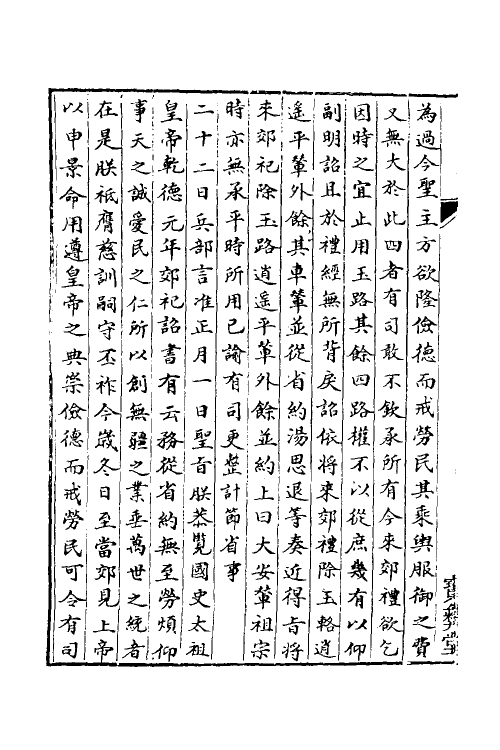 為過今聖主方欲隆儉德而戒勞民其乘輿服御之費
又無大於此四者有司敢不欽承所有今來郊禮欲乞
因時之宜止用玉路其餘四路權不以從庶幾有以仰
副明詔且於禮經無所背戾詔依將來郊禮除玉輅逍
遙平輦外餘其車輦並從省約湯思退等奏近得旨將
來郊祀除玉路逍遙平輦外餘並約上曰大安輦祖宗
時亦無承平時所用已諭有司更整計節省事
二十二日兵部言准正月一日聖旨朕恭覽國史太祖
皇帝乾德元年郊祀詔書有云務從省約無至勞煩仰
事天之誠愛民之仁所以創無疆之業垂萬世之統者
在是朕祗膺慈訓嗣守丕祚今歲冬日至當郊見上帝
以申景命用遵皇帝之典崇儉德而戒勞民可令有司